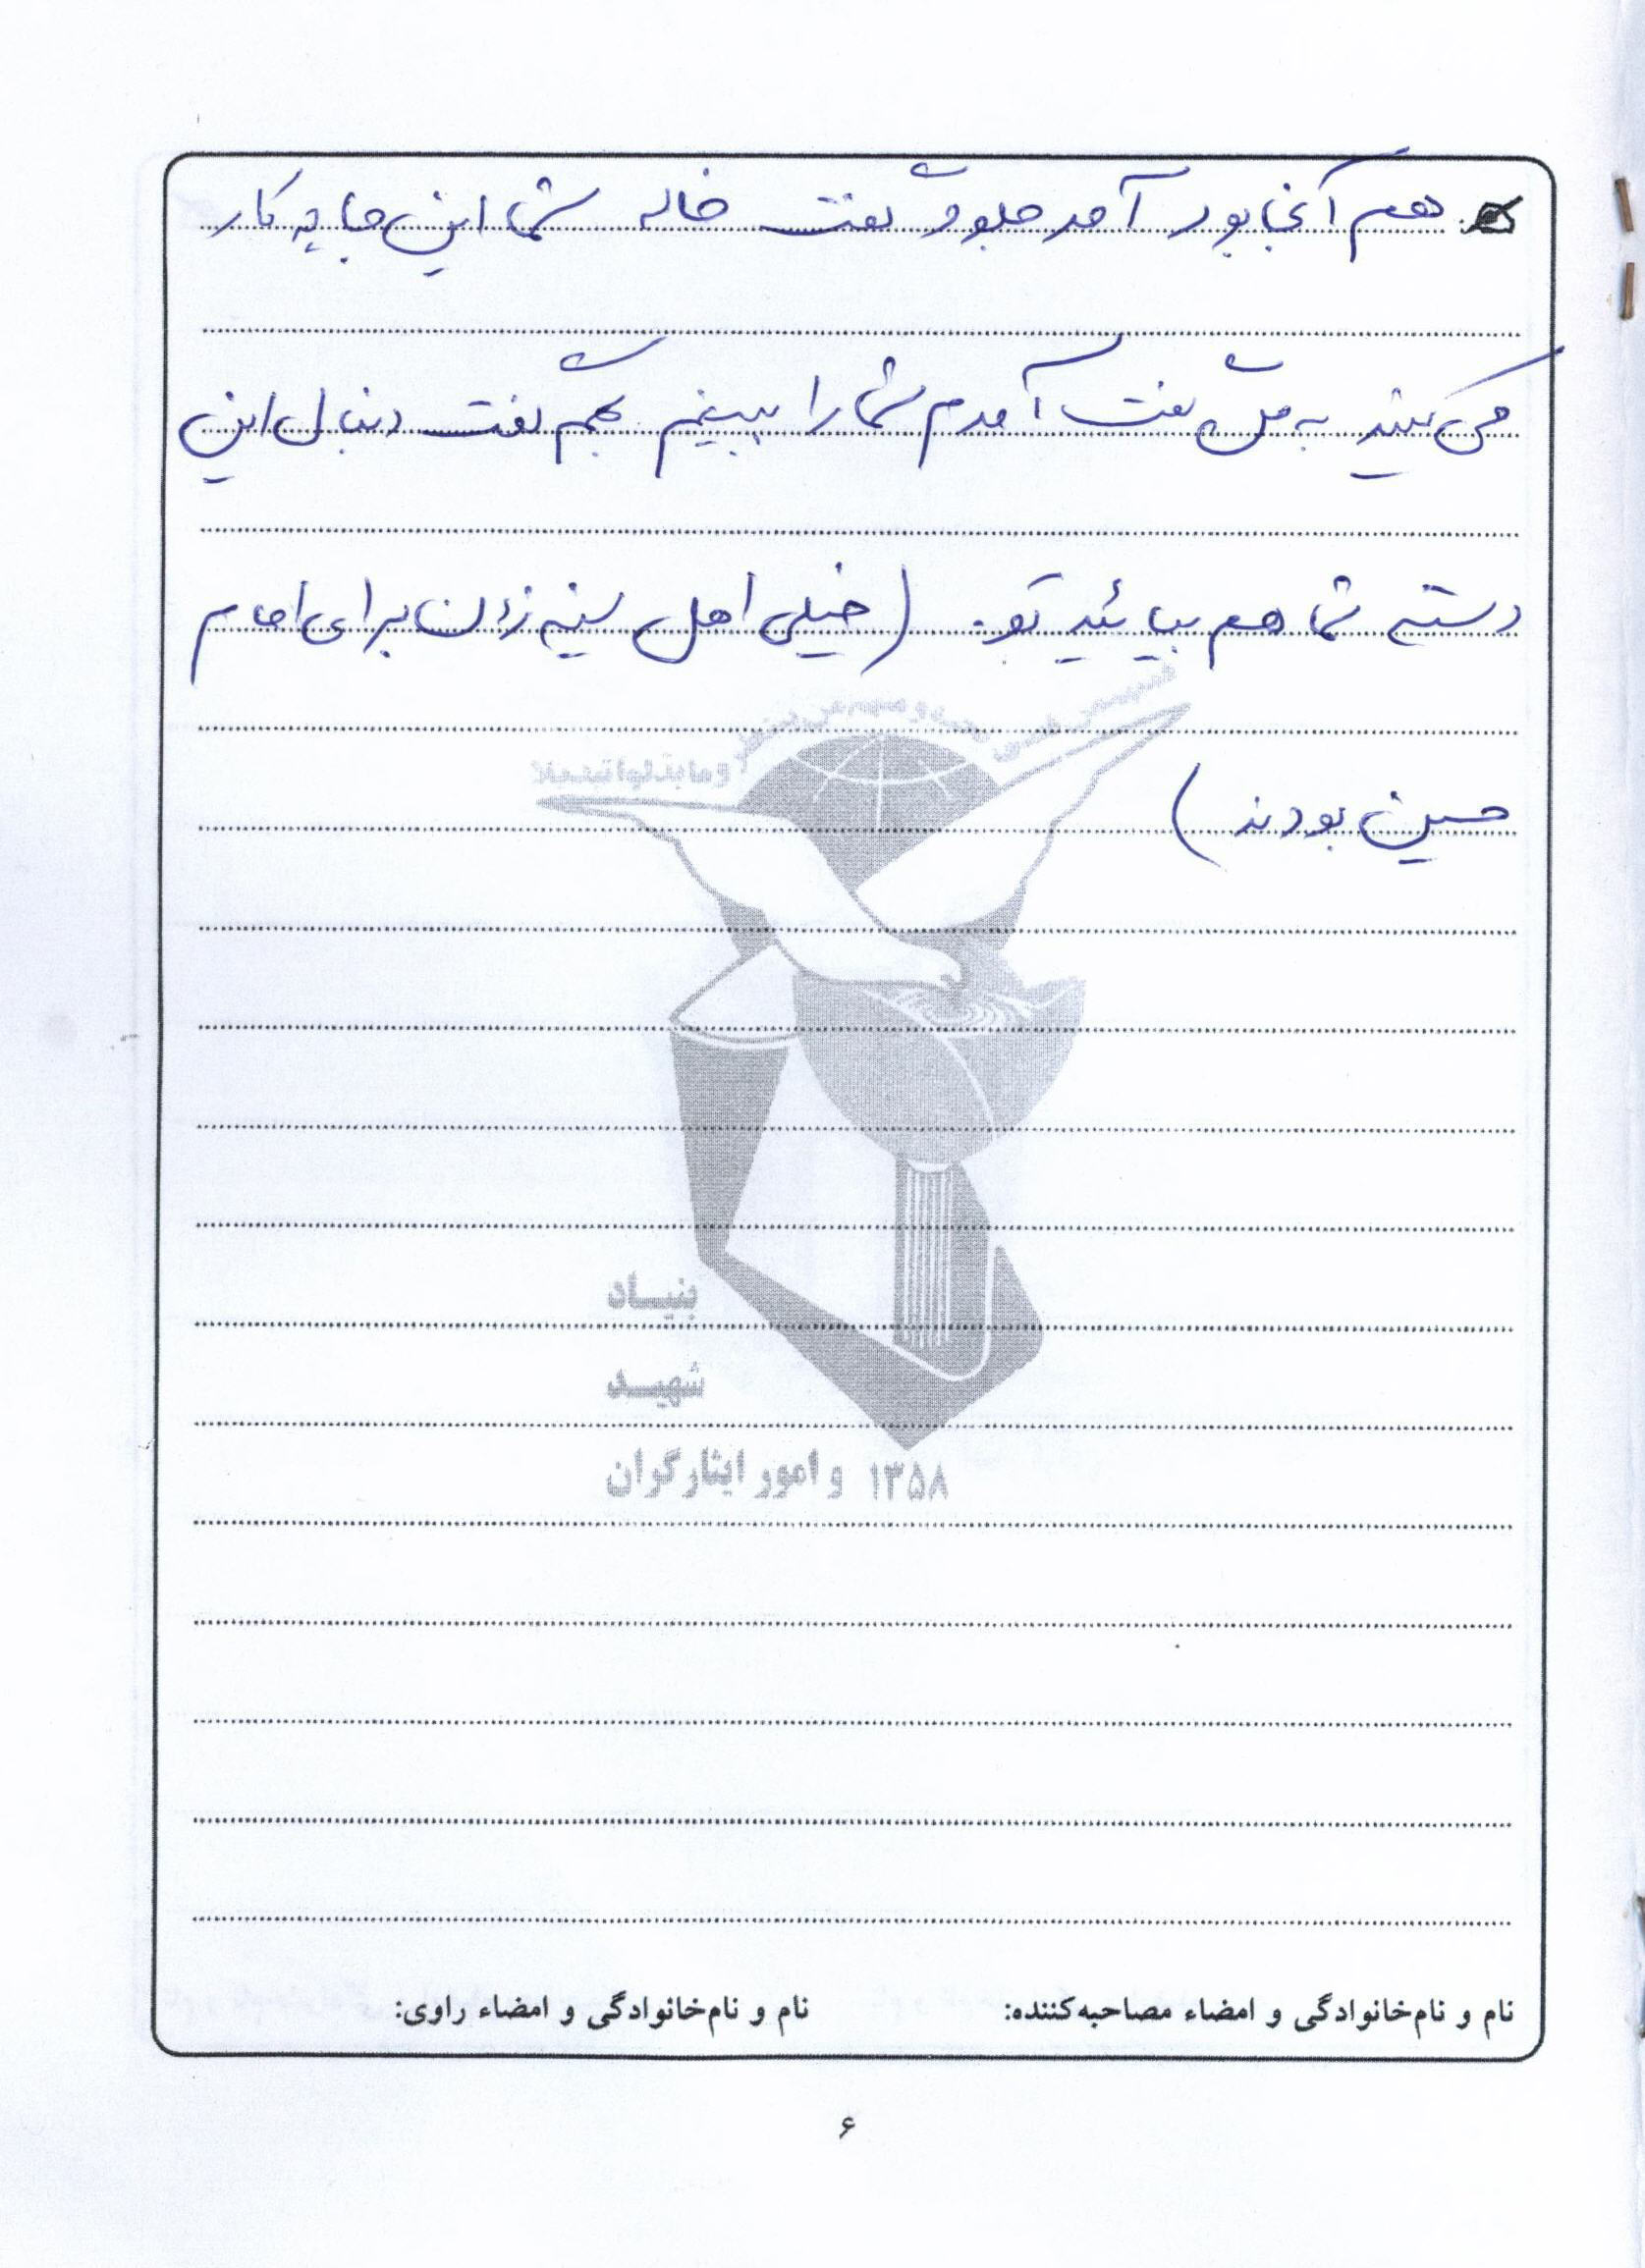 هم آنجا بود آمد جلو و گفت خاله شما این جا چه کار
می کنید به مش گفت آمدم شما را ببینم گفت دنبال این
دسته شما هم بیائید تو. (خیلی اهل سینه زدن برای امام
حسین بودند)
بنیاد
شهید
و امور ایثارگران ۱۳۵۸
نام و نام‌خانوادگی و امضاء مصاحبه‌کننده: نام و نام‌خانوادگی و امضاء راوی:
۶